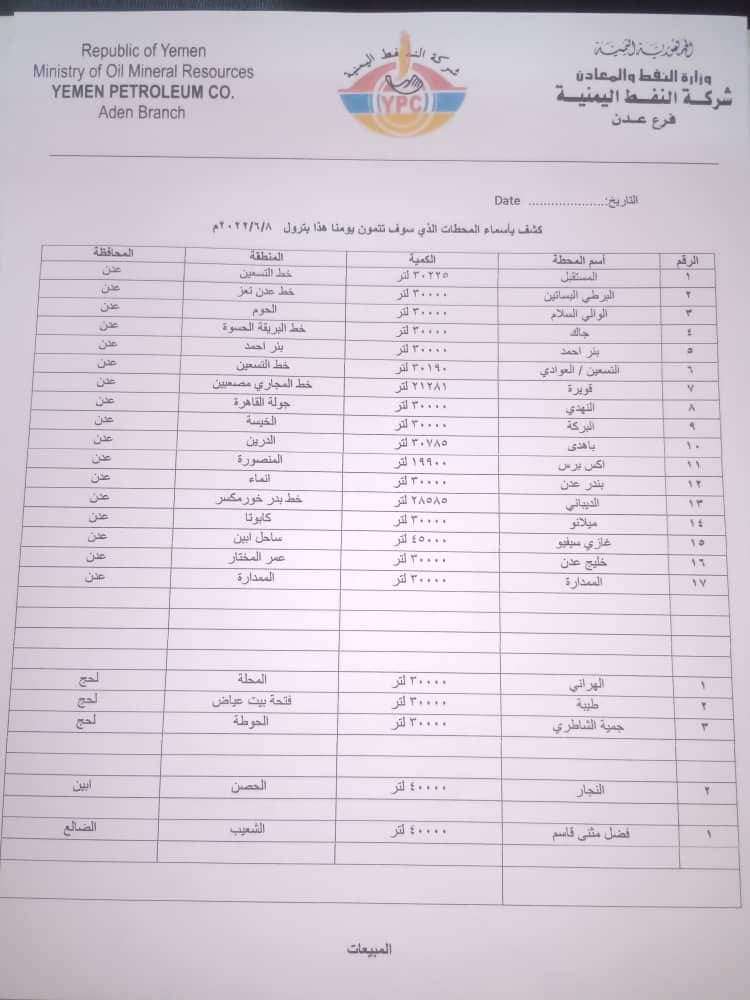 Republic of Yemen
Ministry of Oil Mineral Resources
YEMEN PETROLEUM CO.
Aden Branch
شركة النفط اليمنية
YPC
الجمهورية اليمنية
وزارة النفط والمعادن
شركة النفط اليمنية
فرع عدن
التاريخ:.................... Date
كشف بأسماء المحطات الذي سوف تتمون يومنا هذا بترول ٢٠٢٢/٦/٨م
الرقم أسم المحطة الكمية المنطقة المحافظة
١ المستقبل ٣٠٢٢٥ لتر خط التسعين عدن
٢ البرطي البساتين ٣٠٠٠٠ لتر خط عدن تعز عدن
٣ الوالي السلام ٣٠٠٠٠ لتر الحوم عدن
٤ جاك ٣٠٠٠٠ لتر خط البريقة الحسوة عدن
٥ بئر احمد ٣٠٠٠٠ لتر بئر احمد عدن
٦ التسعين / العوادي ٣٠١٩٠ لتر خط التسعين عدن
٧ قويرة ٢١٢٨١ لتر خط المجاري مصعبين عدن
٨ النهدي ٣٠٠٠٠ لتر جولة القاهرة عدن
٩ البركة ٣٠٠٠٠ لتر الخيسة عدن
١٠ باهدى ٣٠٧٨٥ لتر الدرين عدن
١١ اكس برس ١٩٩٠٠ لتر المنصورة عدن
١٢ بندر عدن ٣٠٠٠٠ لتر انماء عدن
١٣ الذيباني ٢٨٥٨٥ لتر خط بدر خورمكسر عدن
١٤ ميلانو ٣٠٠٠٠ لتر كابوتا عدن
١٥ غازي سيفيو ٤٥٠٠٠ لتر ساحل ابين عدن
١٦ خليج عدن ٣٠٠٠٠ لتر عمر المختار عدن
١٧ الممدارة ٣٠٠٠٠ لتر الممدارة عدن
١ الهراني ٣٠٠٠٠ لتر المحلة لحج
٢ طيبة ٣٠٠٠٠ لتر فتحة بيت عياض لحج
٣ جمية الشاطري ٣٠٠٠٠ لتر الحوطة لحج
٢ النجار ٤٠٠٠٠ لتر الحصن ابين
١ فضل مثنى قاسم ٤٠٠٠٠ لتر الشعيب الضالع
المبيعات